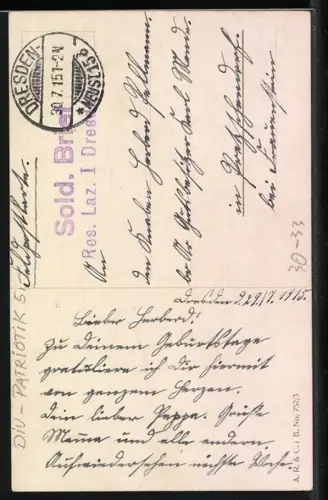 DRESDEN-NEUST.5b
30.7.15.1-2N
Sold. Brief
Res. Laz. I Dres
Feldpostkarte.
An
den Knaben Herbert
Gutsbesitzer Karl
in
bei
30-33
DIV - PATRIOTIK 5
Dresden d. 29./7. 1915.
Lieber Herberd!
Zu Deinem Geburtstage
gratuliere ich Dir hiermit
von ganzem Herzen.
Dein lieber Pappa. Grüße
Mama und alle andern.
Aufwiedersehen nächste Woche.
A. R. & C. i B. No. 757/5